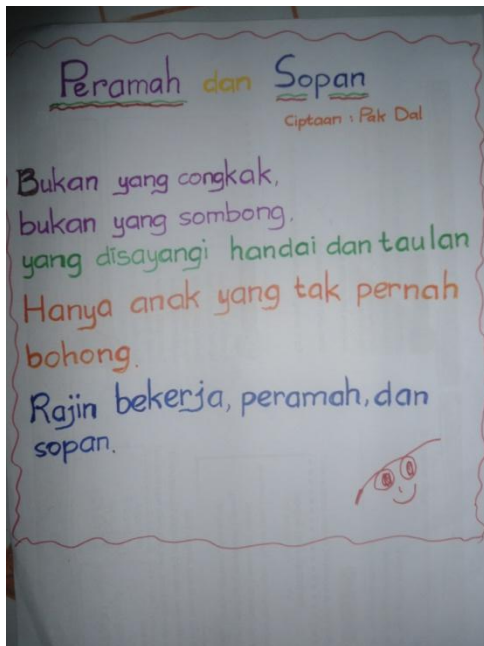 Peramah dan Sopan
Ciptaan : Pak Dal
Bukan yang congkak,
bukan yang sombong.
yang disayangi handai dan taulan
Hanya anak yang tak pernah
bohong.
Rajin bekerja, peramah, dan
sopan.